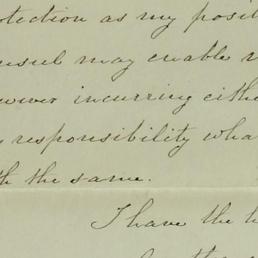 otection as my posit
nsul may enable
wever incurring eithe
responsibility wha
th the same.
I have the h